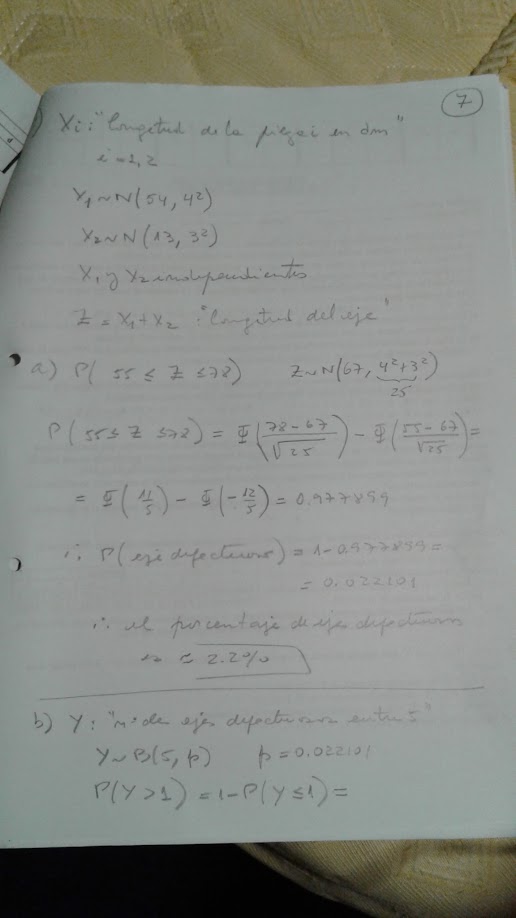 7
Xi: "Longitud de la pieza i en dm"
i=1,2
X1 ~ N(54, 4²)
X2 ~ N(13, 3²)
X1 y X2 independientes
Z = X1 + X2 : "longitud del eje"
a) P( 55 ≤ Z ≤ 78) Z ~ N(67, 4²+3²)
25
P( 55 ≤ Z ≤ 78) = Φ(78-67/√25) - Φ(55-67/√25) =
= Φ(11/5) - Φ(-12/5) = 0.977899
∴ P( eje defectuoso) = 1-0.977899 =
= 0.022101
∴ el porcentaje de ejes defectuosos
≈ 2.2%
b) Y: "nº de ejes defectuosos entre 5"
Y ~ B(5, p) p = 0.022101
P(Y > 1) = 1 - P(Y ≤ 1) =